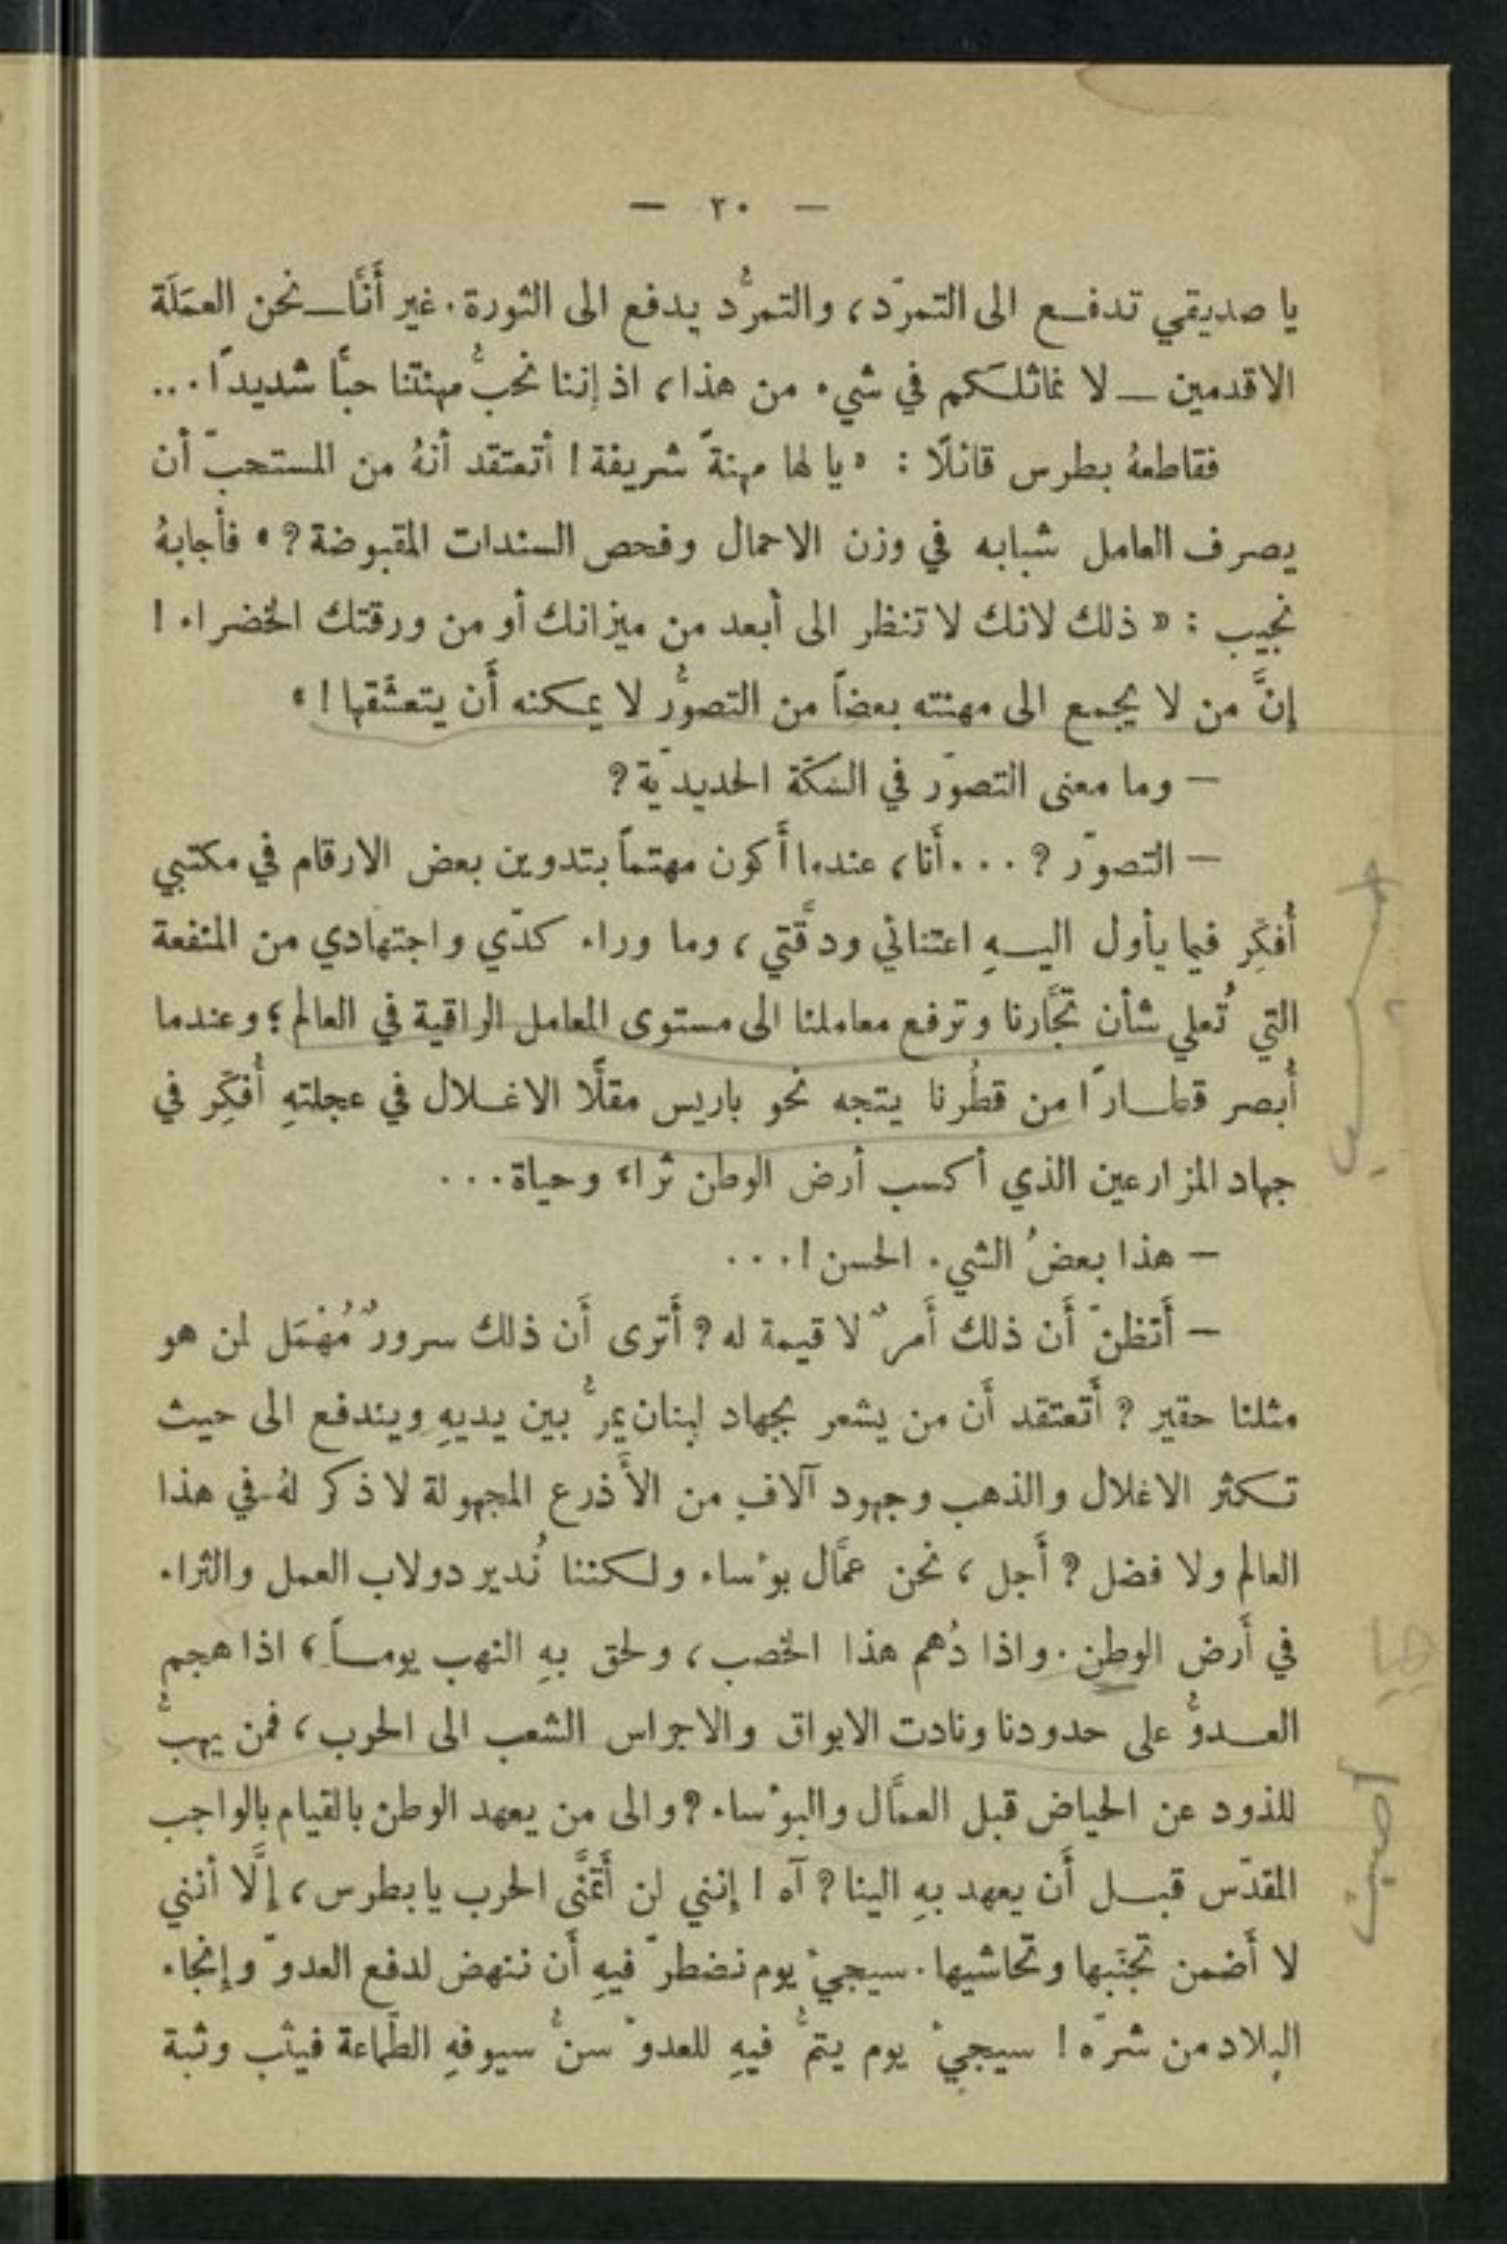 — ٢٠ —
يا صديقي تدفع الى التمرّد، والتمرُّد يدفع الى الثورة. غير أَنَّا — نحن العمَلَة
الاقدمين — لا نماثلكم في شيء من هذا، اذ إننا نحبُّ مهنتنا حبًّا شديدًا...
فقاطعهُ بطرس قائلًا : « يا لها مهنةً شريفة ! أتعتقد أنهُ من المستحبّ أن
يصرف العامل شبابه في وزن الاحمال وفحص السندات المقبوضة ? » فأجابهُ
نجيب : « ذلك لانك لا تنظر الى أبعد من ميزانك أو من ورقتك الخضراء !
إنَّ من لا يجمع الى مهنته بعضاً من التصوُّر لا يمكنه أَن يتعشَّقها ! »
— وما معنى التصوّر في السكّة الحديديّة ?
— التصوّر ? ... أَنا، عندما أَكون مهتماً بتدوين بعض الارقام في مكتبي
أُفكِّر فيما يأول اليهِ اعتنائي ودقَّتي، وما وراء كدّي واجتهادي من المنفعة
التي تُعلي شأن تجَّارنا وترفع معاملنا الى مستوى المعامل الراقية في العالم ؛ وعندما
أُبصر قطارًا من قطُرنا يتجه نحو باريس مقلًّا الاغلال في عجلتهِ أُفكِّر في
جهاد المزارعين الذي أكسب أرض الوطن ثراءً وحياة...
— هذا بعضُ الشيء الحسن !...
— أَتظنّ أَن ذلك أَمرٌ لا قيمة له ? أَترى أَن ذلك سرورٌ مُهْمَل لمن هو
مثلنا حقير ? أَتعتقد أَن من يشعر بجهاد لبنان يمرُّ بين يديهِ ويندفع الى حيث
تكثر الاغلال والذهب وجهود آلاف من الأَذرع المجهولة لا ذكر لهُ في هذا
العالم ولا فضل ? أَجل، نحن عمَّال بؤساء ولكننا نُدير دولاب العمل والثراء
في أَرض الوطن. واذا دُهم هذا الخصب، ولحق بهِ النهب يوماً، اذا هجم
العدوُّ على حدودنا ونادت الابواق والاجراس الشعب الى الحرب، فمن يهبُّ
للذود عن الحياض قبل العمَّال والبؤساء ? والى من يعهد الوطن بالقيام بالواجب
المقدّس قبل أَن يعهد بهِ الينا ? آه ! إنني لن أَتمنَّى الحرب يا بطرس، إلَّا أنني
لا أَضمن تجنّبها وتحاشيها. سيجيءُ يوم نضطرّ فيهِ أَن ننهض لدفع العدوّ وإنجاء
البلاد من شرّه ! سيجيءُ يوم يتمُّ فيهِ للعدوّ سنُّ سيوفهِ الطّماعة فيثب وثبة